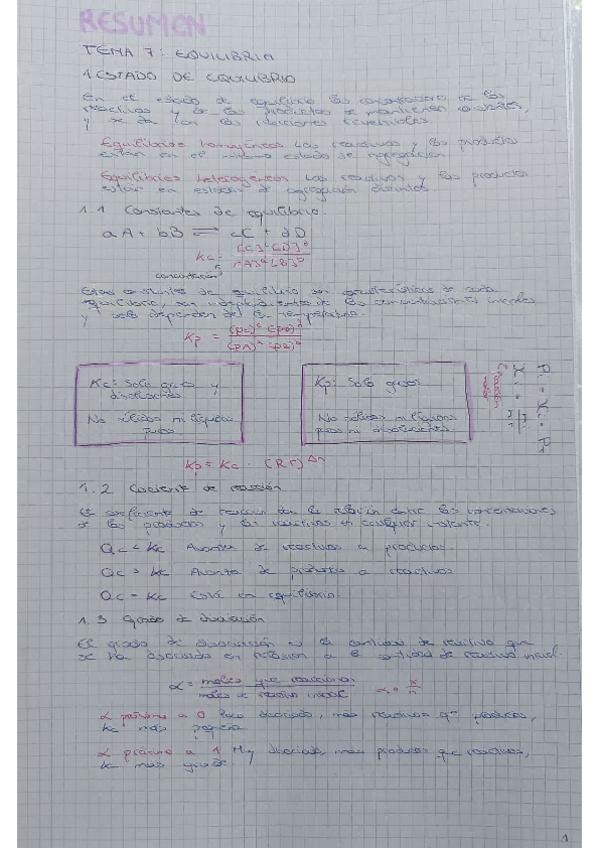 RESUMEN
TEMA 7: EQUILIBRIO
1. ESTADO DE EQUILIBRIO
En el estado de equilibrio las concentraciones de los
reactivos y de los productos se mantienen constantes,
y se da en las reacciones reversibles.
Equilibrios homogéneos Los reactivos y los productos
están en el mismo estado de agregación
Equilibrios heterogéneos Los reactivos y los productos
están en estados de agregación distintos
1.1 Constantes de equilibrio.
aA + bB ⇌ cC + dD
Kc = [C]^c · [D]^d / [A]^a · [B]^b
concentración
Estas constantes de equilibrio son características de cada
equilibrio, son independientes de las concentraciones iniciales
y solo dependen de la temperatura.
Kp = (pC)^c · (pD)^d / (pA)^a · (pB)^b
Kc: Solo gases y
disoluciones
No sólidos ni líquidos
puros
Kp: Solo gases
No sólidos ni líquidos
puros ni disoluciones
Pi = Xi · PT
Kp = Kc · (RT)^Δn
1.2 Cociente de reacción
El coeficiente de reacción da la relación entre las concentraciones
de los productos y los reactivos en cualquier instante.
Qc < Kc Avanza de reactivos a productos.
Qc > Kc Avanza de productos a reactivos
Qc = Kc Está en equilibrio.
1.3 Grado de disociación
El grado de disociación es la cantidad de reactivo que
se ha disociado en relación a la cantidad de reactivo inicial.
α = moles que reaccionan / moles de reactivo inicial α = x/n
α próximo a 0 Poco disociado, más reactivos que productos,
Kc más pequeña.
α próximo a 1 Muy disociado, más productos que reactivos,
Kc más grande.
1